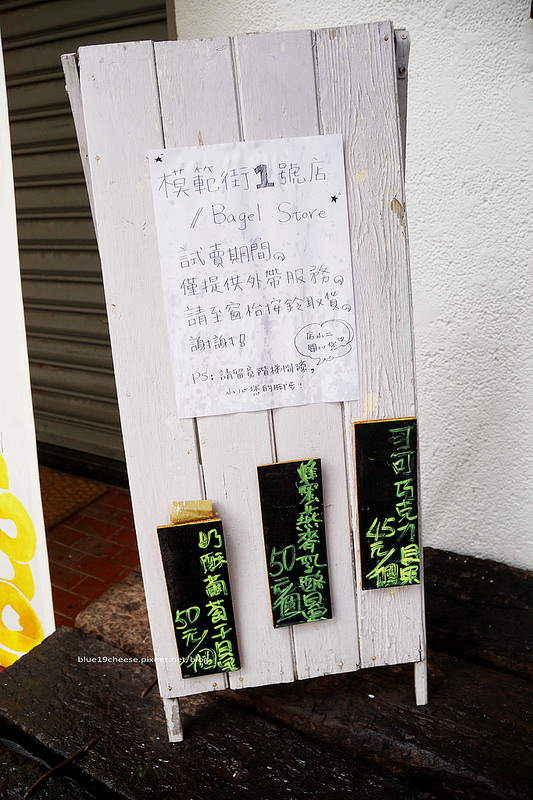 模範街1號店
// Bagel Store
試賣期間。
僅提供外帶服務。
請至窗枱按鈴取貨。
謝謝!
店小二
關心您
PS: 請留意階梯間隙,
小心您的腳步!
可可巧克力貝果
45元/個
蜂蜜燕麥乳酪貝果
50元/個
奶酥葡萄干貝果
50元/個
blue19cheese.pixnet.net/blog